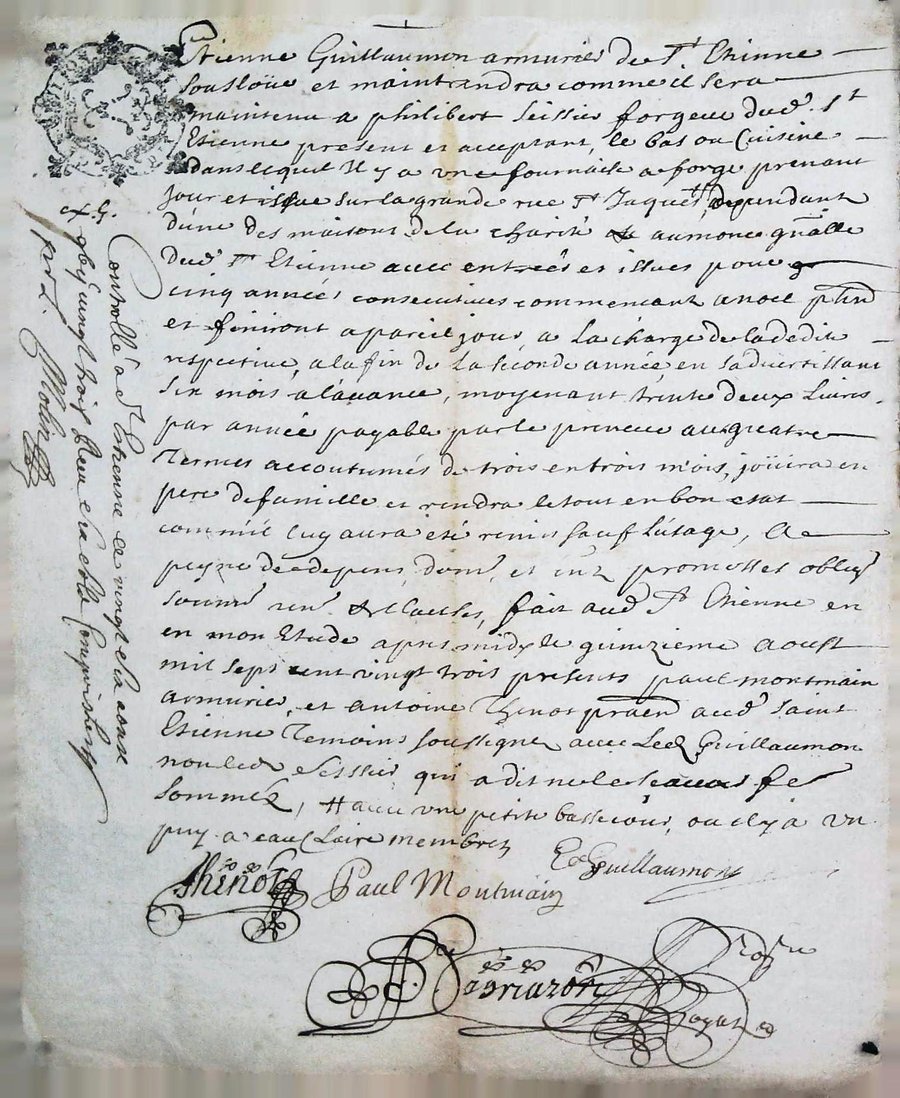 Etienne Guillaumon armurier de St. Etienne
soulloüe et maintiendra comme il sera
maintenu a philibert seissier forgeur dud. St
Etienne present et acceptant, le bas ou Cuisine
dans lequel il y a une fournaise a forge prenant
jour et issue sur la grande rue St Jaques # dependant
d'une des maisons de la charité & aumone gnâlle
dud. St Etienne avec entrées et issues pour
cinq années consecutives commencant a noel
et finiront a pareil jour, a la charge de la dedite
respective, a la fin de la seconde année, en s'advertissant
six mois a l'avance, moyenant trente deux Livres
par année payable par le preneur aux quatre
Termes accoutumés de trois en trois mois, joüira en
pere de famille et rendra le tout en bon etat
comm'il luy aura été remis sauf l'usage, a
peyne de depens, dom, et promesses oblig
soumis ren & clauses, fait aud St Etienne en
en mon Etude apres midy le quinzieme aoust
mil sept cent vingt trois presents paul montmain
armurier, et antoine Thinot praên aud. saint
Etienne Temoins soussignes avec Led Guillaumon
non led seissier qui a dit ne le scavoir fe
sommé, # avec une petite basse cour, ou il y a un
puy a eau Claire
Thinot
Paul Montmain
E Guillaumon
No.re
Royal
Controllé a St Etienne ce vingt
par